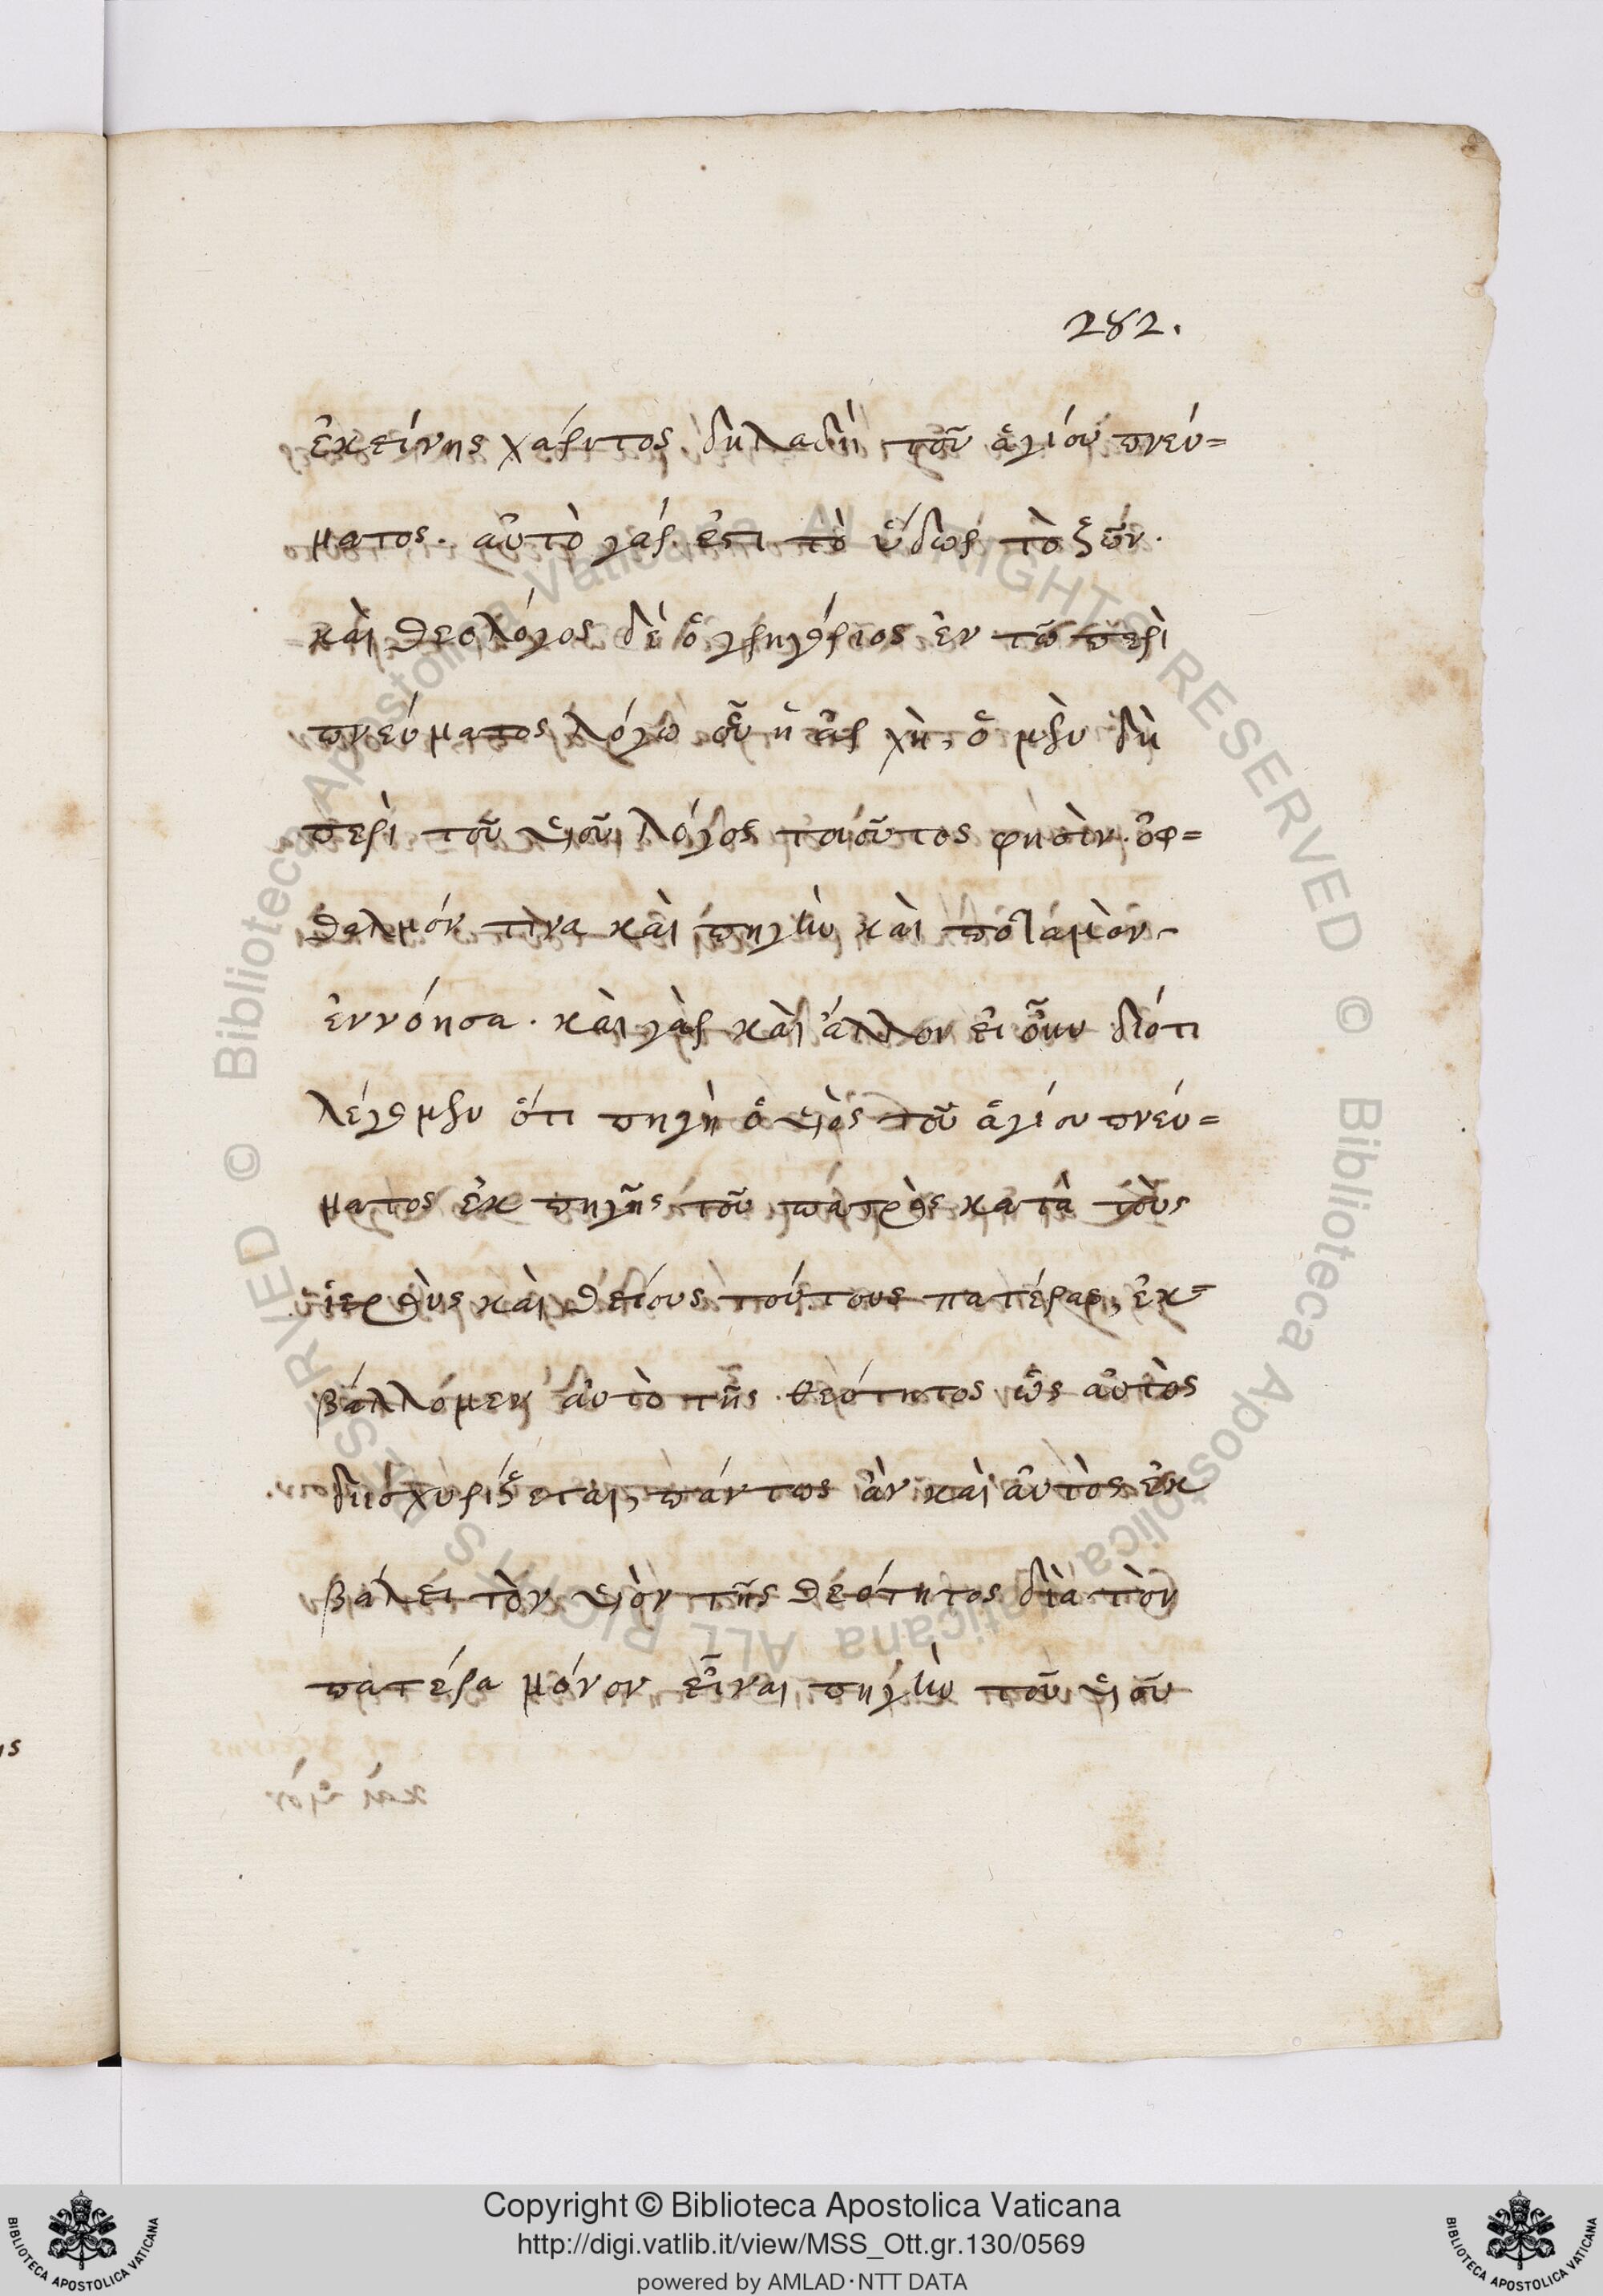 282.
ἐκείνης χάριτος, δηλαδὴ τοῦ ἁγίου πνεύ=
ματος. αὐτὸ γάρ ἐστι τὸ ὕδωρ τὸ ζῶν.
καὶ θεολόγος δὲ ὁ γρηγόριος ἐν τῶ περὶ
πνεύματος λόγω οὗ ἡ ἀρχὴ, ὁ μὲν δὴ
περὶ τοῦ υἱοῦ λόγος τοιοῦτος φησὶν. ὀφ=
θαλμόν τινα καὶ πηγὴν καὶ ποταμὸν
ἐννόησα. καὶ γὰρ καὶ ἄλλοι εἰ οὖν διότι
λέγομεν ὅτι πηγὴ ὁ υἱὸς τοῦ ἁγίου πνεύ=
ματος ἐκ πηγῆς τοῦ πατρὸς κατὰ τοὺς
ἱεροὺς καὶ θείους τούτους πατέρας, ἐκ=
βάλλομεν αὐτὸ τῆς θεότητος ὡς αὐτὸς
διισχυρίζεται, πάντως ἂν καὶ αὐτὸς ἐκ
βάλει τὸν υἱὸν τῆς θεότητος διὰ τὸν
πατέρα μόνον εἶναι πηγὴν τοῦ υἱοῦ
Copyright © Biblioteca Apostolica Vaticana
http://digi.vatlib.it/view/MSS_Ott.gr.130/0569
powered by AMLAD·NTT DATA
BIBLIOTECA APOSTOLICA VATICANA
BIBLIOTECA APOSTOLICA VATICANA
© Biblioteca Apostolica Vaticana ALL RIGHTS RESERVED © Biblioteca Apostolica Vaticana ALL RIGHTS RESERVED